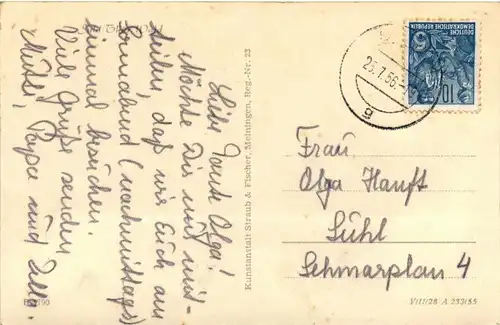 Liebe Tante Olga!
Möchte Dir nur mit-
teilen, daß wir Euch am
Sonnabend (nachmittags)
einmal besuchen.
Viele Grüße senden
Mutti, Papa und
Kunstanstalt Straub & Fischer, Meiningen, Reg.-Nr. 23
DEUTSCHE
DEMOKRATISCHE
REPUBLIK
10
25.7.56.-
g
Frau
Olga Hanft
Suhl
Schmarplan 4
VIII/28 A 233/55